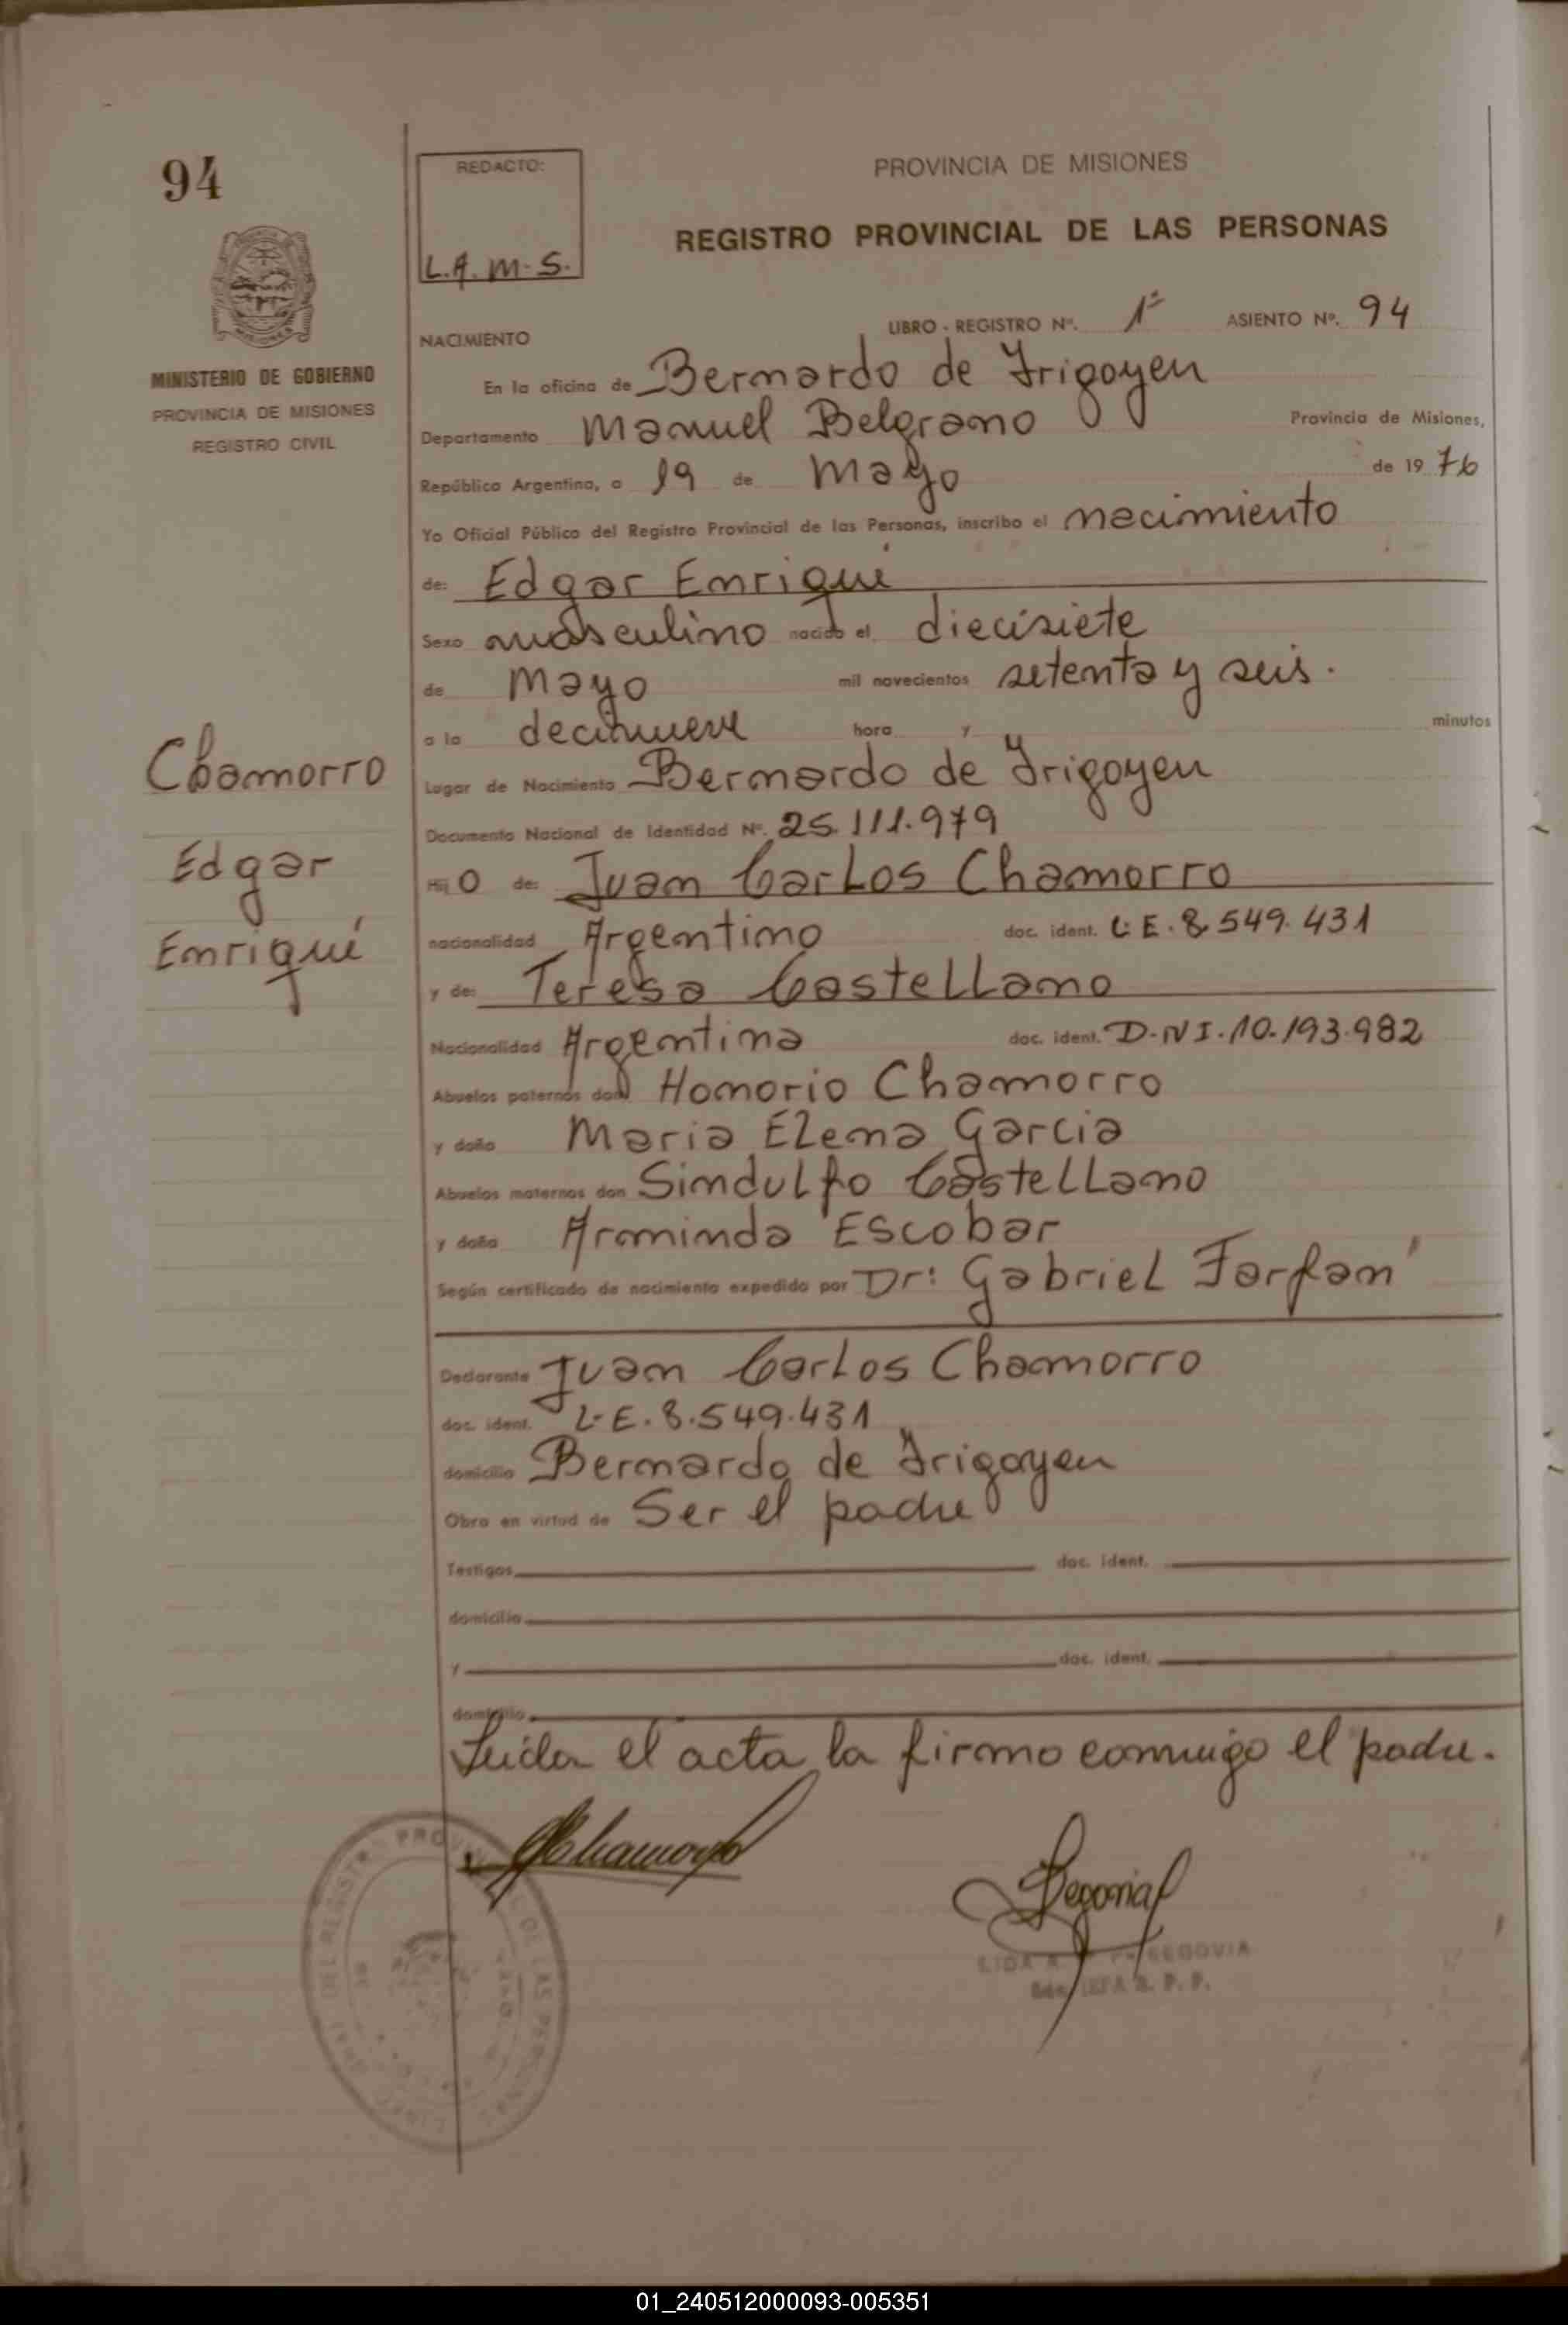 94
REDACTO:
L.A.M-S.
PROVINCIA DE MISIONES
REGISTRO PROVINCIAL DE LAS PERSONAS
MINISTERIO DE GOBIERNO
PROVINCIA DE MISIONES
REGISTRO CIVIL
NACIMIENTO LIBRO - REGISTRO Nº. 1º ASIENTO Nº. 94
En la oficina de Bernardo de Irigoyen
Departamento Manuel Belgrano Provincia de Misiones,
República Argentina, a 19 de Mayo de 1976
Yo Oficial Público del Registro Provincial de las Personas, inscribo el nacimiento
de: Edgar Enriqué
Sexo masculino nacido el diecisiete
de Mayo mil novecientos setenta y seis.
a la decinueve hora y minutos
Chamorro
Edgar
Enriqué
Lugar de Nacimiento Bernardo de Irigoyen
Documento Nacional de Identidad Nº. 25.111.979
Hij o de: Juan Carlos Chamorro
nacionalidad Argentino doc. ident. L.E.8.549.431
y de: Teresa Castellano
Nacionalidad Argentina doc. ident. D-NI.10.193.982
Abuelos paternos don Honorio Chamorro
y doña Maria Elena Garcia
Abuelos maternos don Sindulfo Castellano
y doña Arminda Escobar
Según certificado de nacimiento expedido por Dr: Gabriel Farfan
Declarante Juan Carlos Chamorro
doc. ident. L-E.8.549.431
domicilio Bernardo de Irigoyen
Obra en virtud de Ser el padre
Testigos doc. ident.
domicilio
y doc. ident.
domicilio
Leida el acta la firmo conmigo el padre.
LIDA SEGOVIA
R. P. P.
01_240512000093-005351